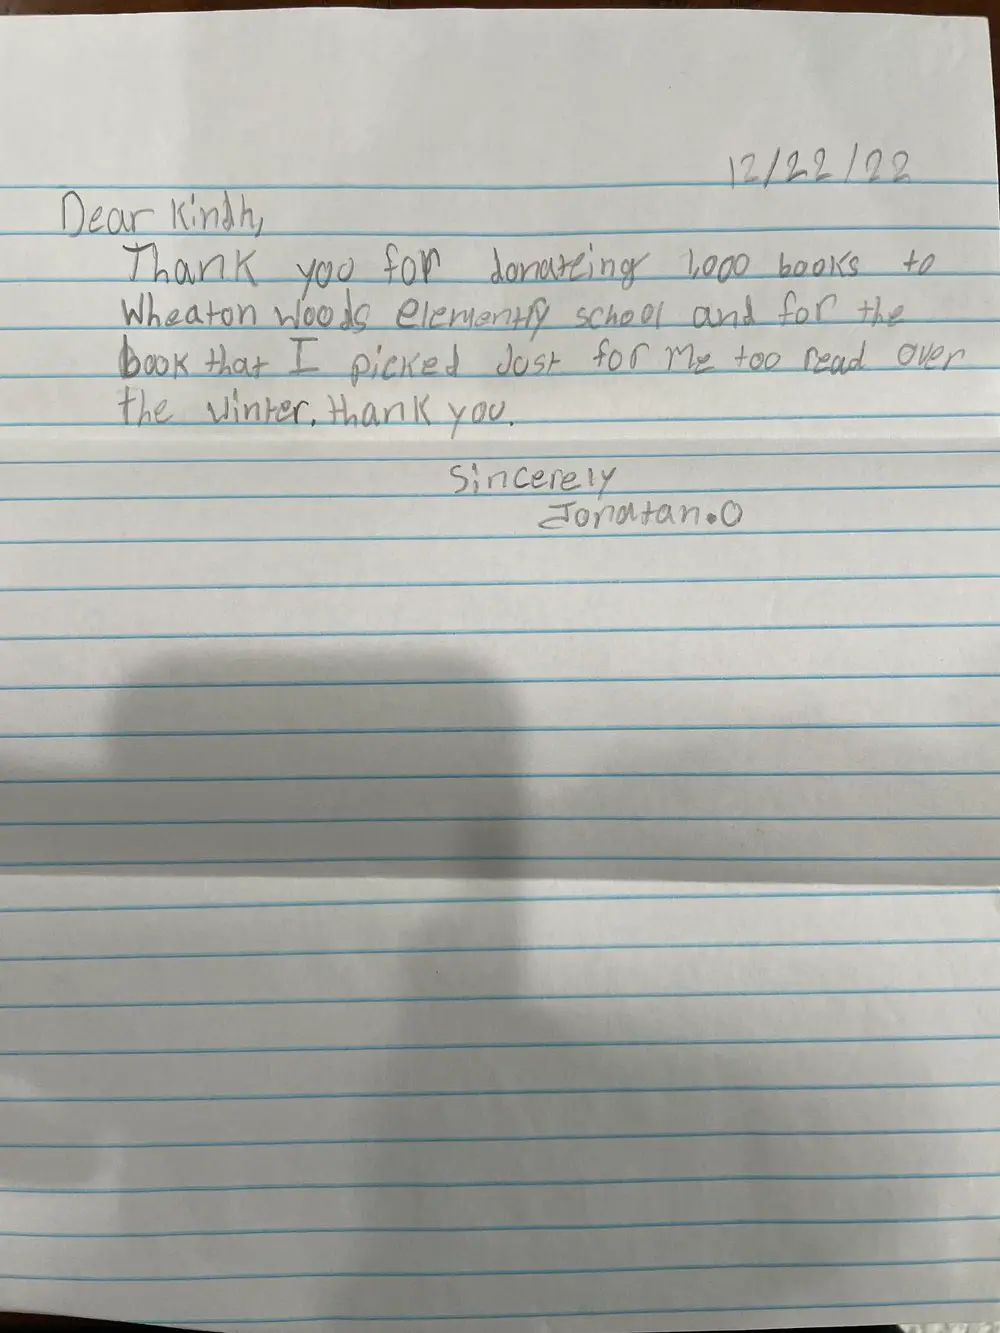 12/22/22
Dear Kindh,
Thank you for donateing 1,000 books to
Wheaton Woods elementry school and for the
book that I picked Just for me too read over
the winter. thank you.
Sincerely
Jonatan.O